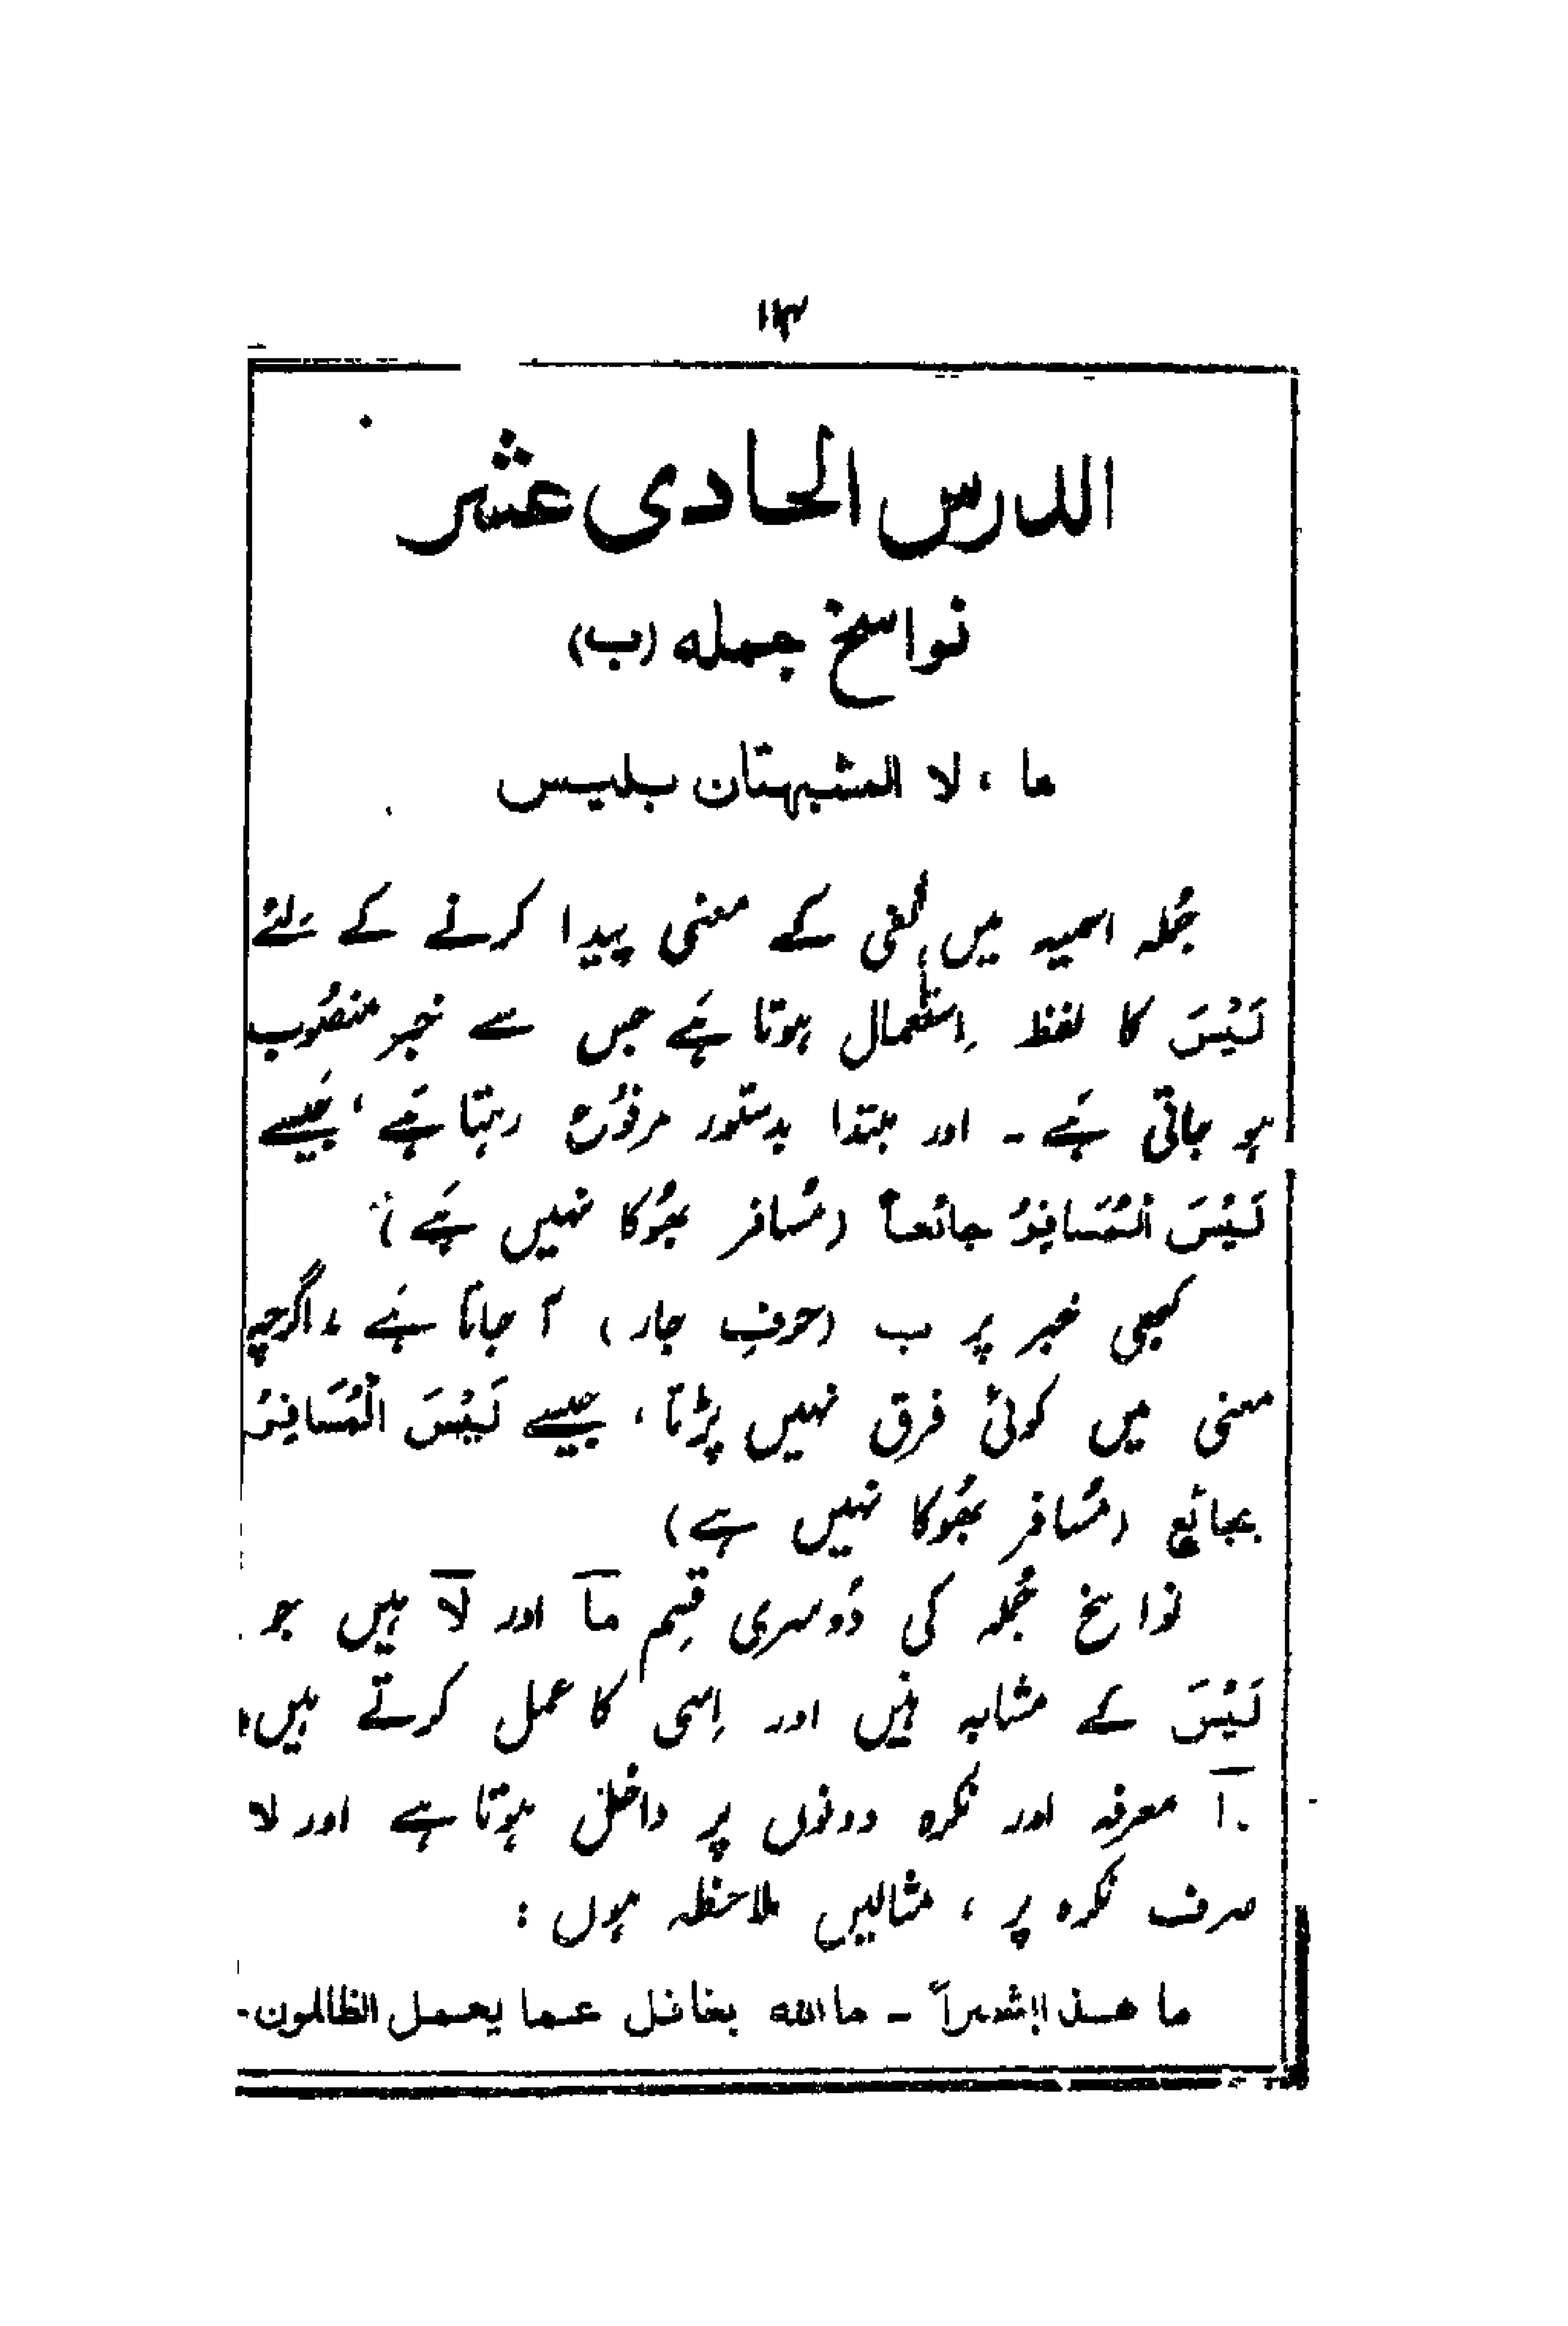 الدرس الحادی عشر
نواسخ جمله (ب)
ما ، لا المشبهتان بلیس
جُملہ اسمیہ میں نفی کے معنی پیدا کرنے کے لئے
لَیْسَ کا لفظ اِستعمال ہوتا ہَے جس سے خبر منصُوب
ہو جاتی ہَے ۔ اور مبتدا بدستور مرفُوع رہتا ہَے ، جَیسے
لَیْسَ الْمُسَافِرُ جائعاً (مُسافر بھُوکا نہیں ہَے)
کبھی خبر پر ب (حرفِ جار) آ جاتا ہَے ، اگرچہ
معنی میں کوئی فرق نہیں پڑتا ، جیسے لَیْسَ الْمُسَافِرُ
بجائعٍ (مُسافر بھُوکا نہیں ہے)
نواسخ جُملہ کی دُوسری قِسم مَا اور لَا ہیں جو
لَیْسَ کے مشابہ ہَیں اور اِسی کا عمل کرتے ہیں،
ما معرفہ اور نکرہ دونوں پر داخل ہوتا ہے اور لا
صرف نکرہ پر ، مثالیں ملاحظہ ہوں :
ما هـذا بشراً ـ ما الله بغافل عـما یعمل الظالمون ـ